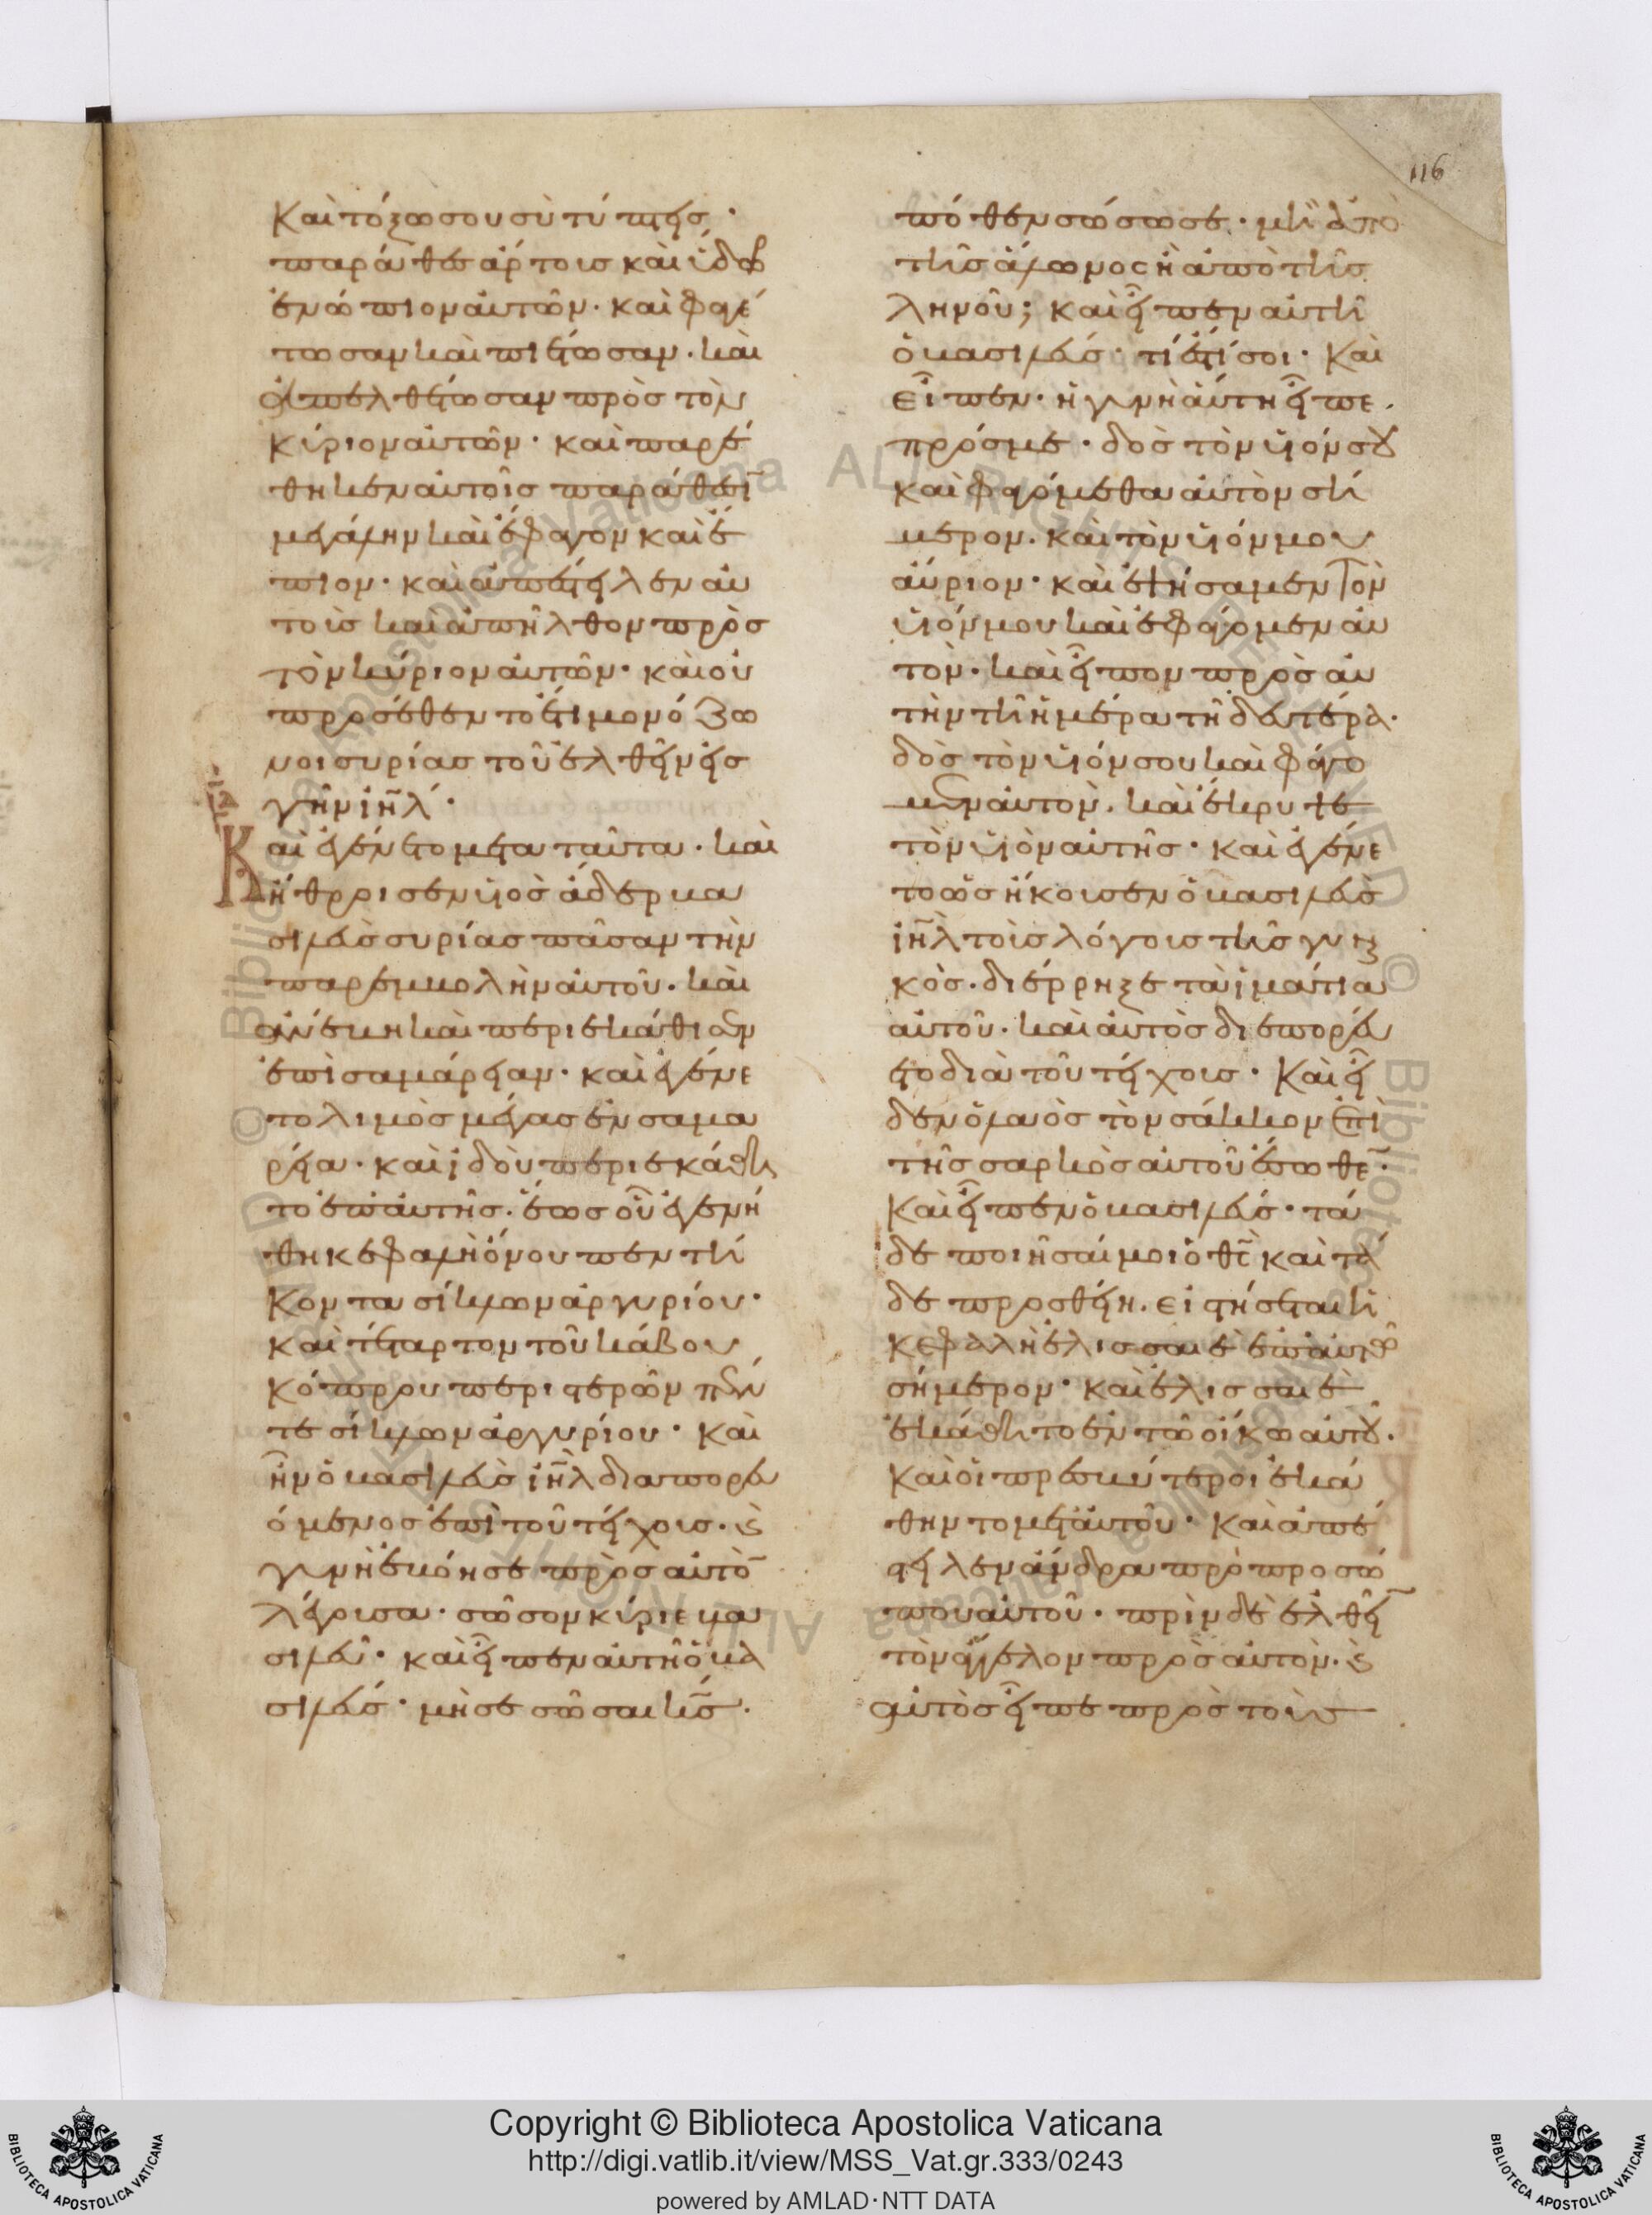 116
Καὶ τόξω σου σὺ τύπτεις·
παράθες ἄρτους καὶ ὕδωρ
ἐνώπιον αὐτῶν· καὶ φαγέ
τωσαν καὶ πιέτωσαν· καὶ
ἀπελθέτωσαν πρὸς τὸν
κύριον αὐτῶν· καὶ παρέ
θηκεν αὐτοῖς παράθεσῑ
μεγάλην καὶ ἔφαγον καὶ ἔ
πιον· καὶ ἀπέστειλεν αὐ
τοὺς καὶ ἀπῆλθον πρὸς
τὸν κύριον αὐτῶν· καὶ οὐ
προσέθεντο ἔτι μονόζω
νοι συρίας τοῦ ἐλθεῖν εἰς
γῆν ιη̄λ·
Καὶ ἐγένετο μετὰ ταῦτα· καὶ
ἤθροισεν υἱὸς ἄδερ βα
σιλεὺς συρίας πᾶσαν τὴν
παρεμβολὴν αὐτοῦ· καὶ
ἀνέβη καὶ περιεκάθισεν
ἐπὶ σαμάρειαν· καὶ ἐγένε
το λιμὸς μέγας ἐν σαμα
ρεία· καὶ ἰδοὺ περιεκάθη
το ἐπ' αὐτῆς· ἕως οὗ ἐγενή
θη κεφαλὴ ὄνου πεντή
κοντα σίκλων ἀργυρίου·
καὶ τέταρτον τοῦ κάβου
κόπρου περιστερῶν πέν
τε σίκλων ἀργυρίου· Καὶ
ἦν ὁ βασιλεὺς ιη̄λ διαπορευ
όμενος ἐπὶ τοῦ τείχους· ϗ
γυνὴ ἐβόησε πρὸς αὐτὸ̄
λέγουσα· σῶσον κύριε βα
σιλεῦ· καὶ εἶπεν αὐτῆ ὁ βα
σιλεύς· μή σε σῶσαι κ̄ς·
πόθεν σώσω σε· μὴ ἀπὸ
τῆς ἅλωνος ἢ ἀπὸ τῆς
ληνοῦ; καὶ εἶπεν αὐτῆ
ὁ βασιλεύς· τί ἐστί σοι· Καὶ
εἶπεν· ἡ γυνὴ αὕτη εἶπε
πρός με· δὸς τὸν υἱόν σου
καὶ φαγόμεθα αὐτὸν σή
μερον· καὶ τὸν υἱόν μου
αὔριον· καὶ ἑψήσαμεν τὸν
υἱόν μου καὶ ἐφάγομεν αὐ
τόν· καὶ εἶπον πρὸς αὐ
τὴν τῆ ἡμέρα τῆ δευτέρα·
δὸς τὸν υἱόν σου καὶ φάγο
μεν αὐτόν· καὶ ἔκρυψε
τὸν υἱὸν αὐτῆς· καὶ ἐγένε
το ὡς ἤκουσεν ὁ βασιλεὺς
ιη̄λ τοὺς λόγους τῆς γυναι
κός· διέρρηξε τὰ ἱμάτια
αὐτοῦ· καὶ αὐτὸς διεπορεύ
ετο διὰ τοῦ τείχους· Καὶ εἶ
δεν ὁ λαὸς τὸν σάκκον ἐπὶ
τῆς σαρκὸς αὐτοῦ ἔσωθε̄·
Καὶ εἶπεν ὁ βασιλεύς· τά
δε ποιήσαι μοι ὁ θ̄ς καὶ τά
δε προσθείη· εἰ στήσεται ἡ
κεφαλὴ ἐλισσαιὲ ἐπ' αὐτῶ
σήμερον· καὶ ἐλισσαιὲ
ἐκάθητο ἐν τῶ οἴκω αὐτοῦ·
Καὶ οἱ πρεσβύτεροι ἐκά
θηντο μετ' αὐτοῦ· Καὶ ἀπέ
στειλεν ἄνδρα πρὸ προσώ
που αὐτοῦ· πρὶν δὲ ἐλθεῖ̄
τὸν ἄγγελον πρὸς αὐτόν· ϗ
αὐτὸς εἶπε πρὸς τοὺς
Copyright © Biblioteca Apostolica Vaticana
http://digi.vatlib.it/view/MSS_Vat.gr.333/0243
powered by AMLAD·NTT DATA
BIBLIOTECA APOSTOLICA VATICANA
BIBLIOTECA APOSTOLICA VATICANA